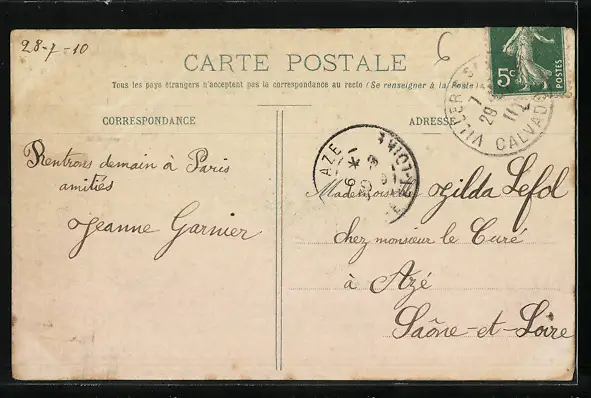 28-7-10
6
5c
POSTES
CARTE POSTALE
Tous les pays étrangers n'acceptent pas la correspondance au recto (Se renseigner à la Poste)
VILLERS S
29 7
10
CALVADOS
CORRESPONDANCE
ADRESSE
AZE
Rentrons demain à Paris
amitiés
Jeanne Garnier
Mademoiselle Gilda Lefol
chez monsieur le Curé
à Azé
Saône-et-Loire